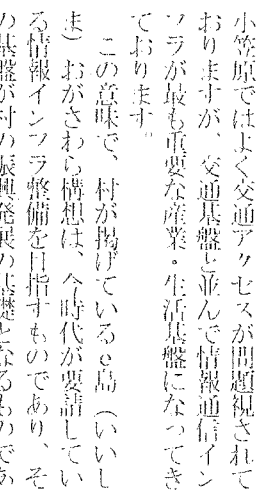 小笠原ではよく交通アクセスが問題視されて
おりますが、交通基盤と並んで情報通信イン
フラが最も重要な産業・生活基盤になってき
ております。
この意味で、村が掲げているｅ島（いいし
ま）おがさわら構想は、今時代が要請してい
る情報インフラ整備を目指すものであり、そ
の基盤が村の振興発展の基礎となるものであ